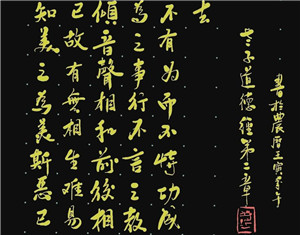 知美之為美斯惡已
已故有無相生難易
傾音聲相和前後相
為之事行不言之教
不有为而不恃功成
去
老子道德經第二章
書於農曆壬寅